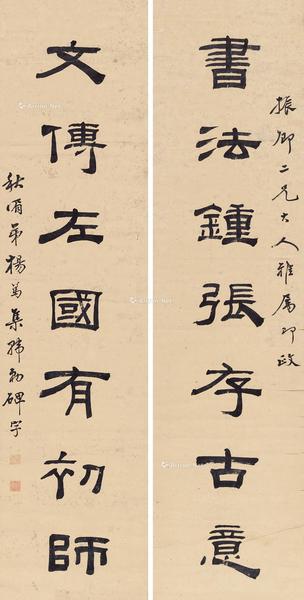 振卿二兄大人雅屬即政
書法鍾張存古意
文傳左國有初師
秋湄弟楊篤集韓勑碑字